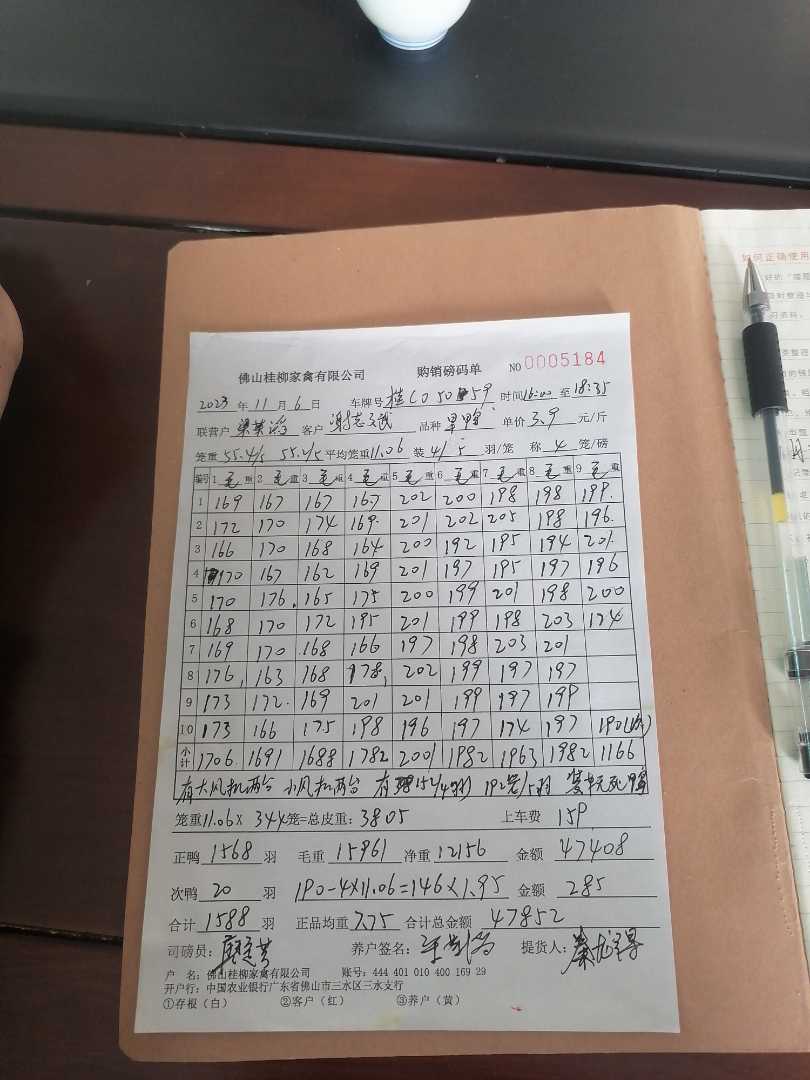 佛山桂柳家禽有限公司 购销磅码单 NO 0005184
2023 年 11 月 6 日 车牌号 桂C0 50 59 时间 16:00 至 18:35
联营户 客户 品种 单价 3.9 元/斤
笼重 55.4/5 55.2/5 平均笼重 11.06 装 4/5 羽/笼 称 4 笼/磅
编号 1 毛重 2 毛重 3 毛重 4 毛重 5 毛重 6 毛重 7 毛重 8 毛重 9 毛重
1 169 167 167 167 202 200 198 198 199
2 172 170 174 169 201 202 205 198 196
3 166 170 168 164 200 192 195 194 201
4 170 167 162 169 201 197 195 197 196
5 170 176 165 175 200 199 201 198 200
6 168 170 172 195 201 199 198 203 174
7 169 170 168 166 197 198 203 201
8 176 163 168 178 202 199 197 197
9 173 172 169 201 201 199 197 199
10 173 166 175 198 196 197 174 197 190
小计 1706 1691 1688 1782 2001 1982 1963 1982 1166
有大风机两台 小风机两台 有 152 192笼/5羽
笼重 11.06 × 344 笼=总皮重: 3805 上车费 159
正鸭 1568 羽 毛重 15961 净重 12156 金额 47408
次鸭 20 羽 190-4×11.06=146×1.95 金额 285
合计 1588 羽 正品均重 7.75 合计总金额 47852
司磅员: 养户签名: 提货人:
户 名: 佛山桂柳家禽有限公司 账号: 444 401 010 400 169 29
开户行: 中国农业银行广东省佛山市三水区三水支行
①存根（白） ②客户（红） ③养户（黄）
如何正确使用